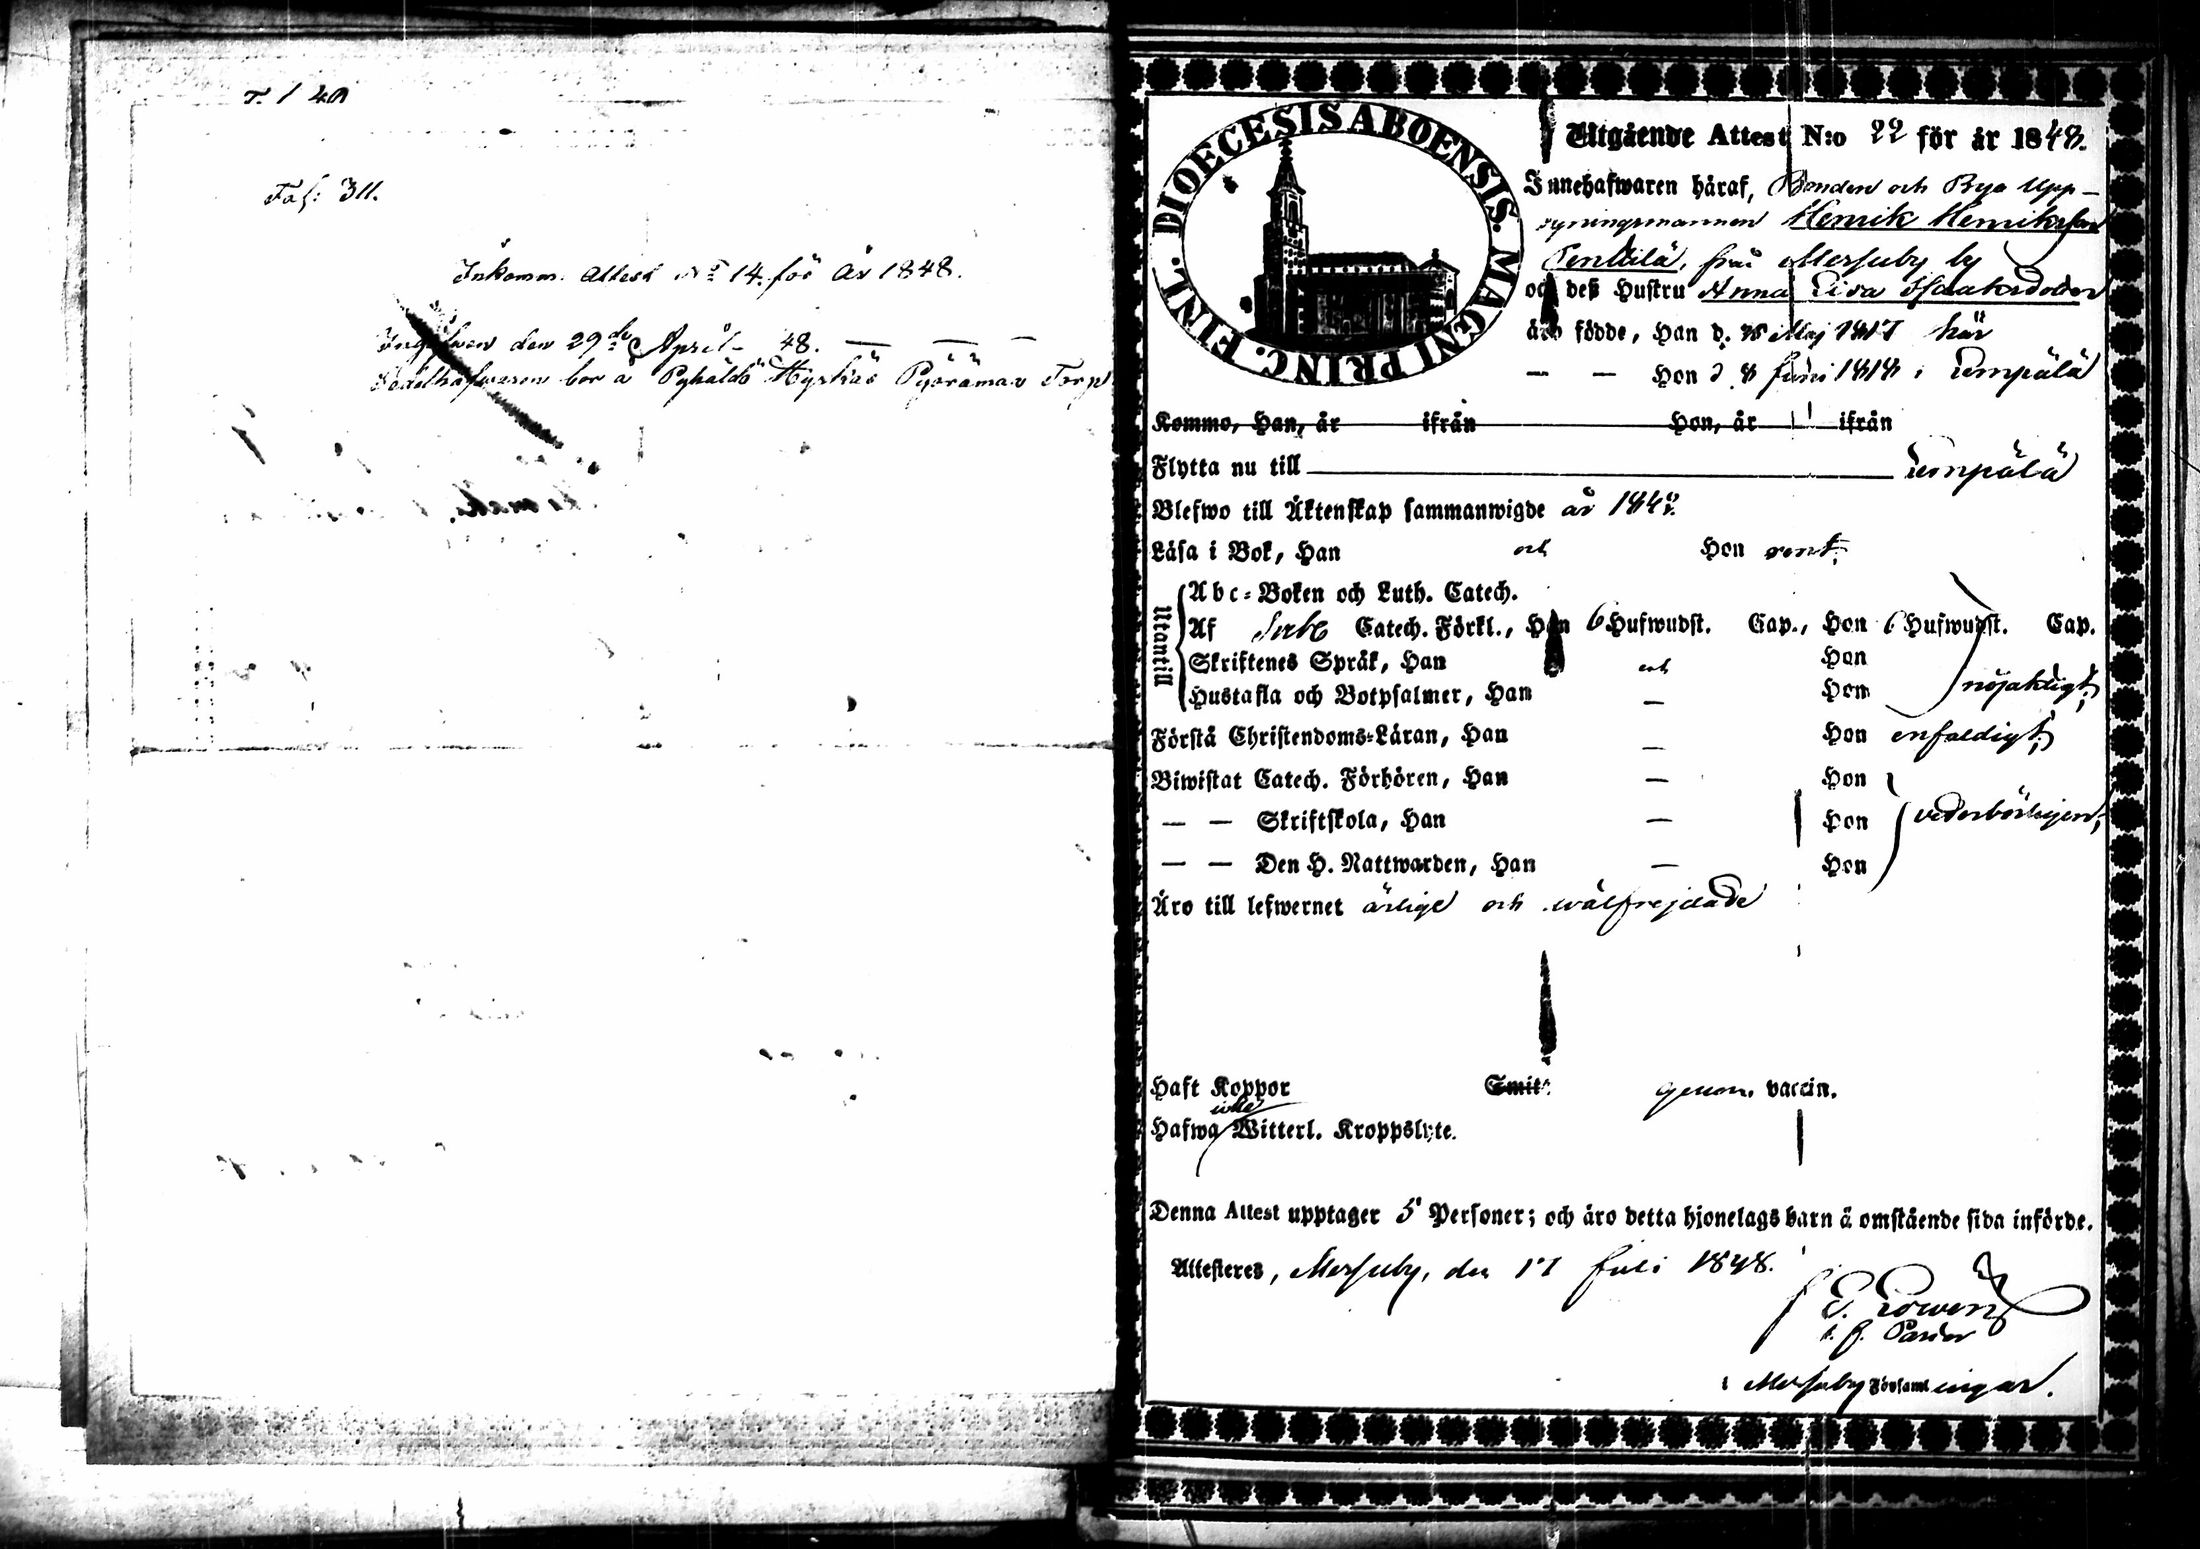 Fol: 311.
Inkomm. Attest No 14. för År 1848.
Ingifwen den 29de April 48. — — —
bor å Hyrkäs Torp
DIOECESIS ABOENSIS. MAGNI PRINC. FINL.
Utgående Attest N:o 22 för år 1848.
Innehafwaren häraf, Bonden och Bya Upp-
syningsmannen Henrik Henriksson
Penttilä, från by
och deß Hustru Anna Lisa Isaaksdotter
äro födde, Han d. Maj 1817 här
— — Hon d 8 Juni 1818 i Lempälä
Kommo, Han, år ifrån Hon, år ifrån
Flytta nu till Lempälä
Blefwo till Äktenskap sammanwigde år
Läsa i Bok, Han och Hon rent;
Utantill
Abc-Boken och Luth. Catech.
Af Catech. Förkl., Han 6 Hufwudst. Cap., Hon 6 Hufwudst. Cap.
Skriftenes Språk, Han och Hon
Hustafla och Botpsalmer, Han — Hon nöjaktigt;
Förstå Christendoms-Läran, Han — Hon enfaldigt;
Biwistat Catech. Förhören, Han — Hon
— — Skriftskola, Han — Hon vederbörligen;
— — Den H. Nattwarden, Han — Hon
Äro till lefwernet ärlige och wälfrejdade
Haft Koppor Smitt. genom vaccin.
icke
Hafwa Witterl. Kroppslyte.
Denna Attest upptager 5 Personer; och äro detta hjonelags barn å omstående sida införde.
Attesteres, den 17 Juli 1848.
i Församlingar.